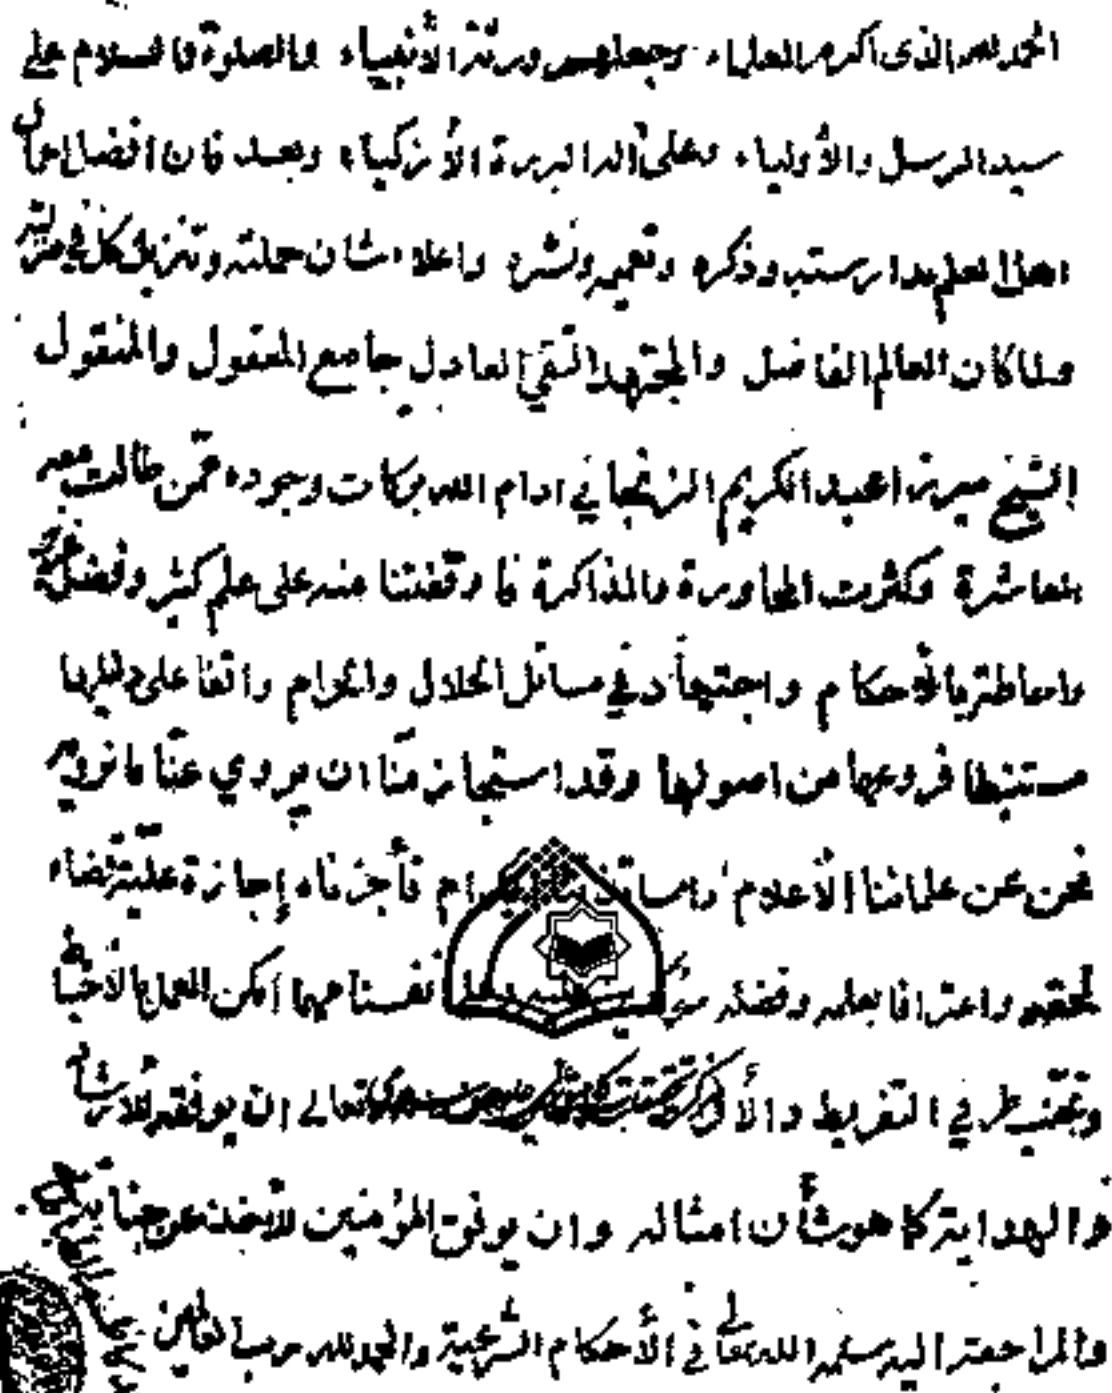 الحمد لله الذى اكرم العلماء وجعلهم ورثة الأنبياء والصلوة والسلام على
سيد الرسل والأولياء وعلى آله البررة الأزكياء وبعد فان افضل اعمال
اهل العلم مدارسته وذكره وتعميمه ونشره واعلاء شان حملته وتنزيل كل في منزلته
ولما كان العالم الفاضل والمجتهد التقي العادل جامع المعقول والمنقول
الشيخ ميرزا عبد الكريم الزنجاني ادام الله بركات وجوده ممّن طالت معه
المعاشرة وكثرت المحاورة والمذاكرة فاوقفتنا منه على علم كثير وفضل
واحاطة بالأحكام واجتهاد في مسائل الحلال والحرام واقفا على دليلها
مستنبطا فروعها من اصولها وقد استجاز منّا ان يروي عنّا ما نرويه
نحن عن علمائنا الأعلام الكرام فأجزناه إجازة علمية قضاء
لحقه واعترافا بعلمه وفضله انفسنا مهما امكن العمل بالأحتياط
وتجنب طرفي التفريط والأفراط تعالى ان يوفقه للأرشاد
والهداية كما هو شأن امثاله وان يوفق المؤمنين للأخذ عن جنابه
والمراجعة اليه سلمه الله تعالى في الأحكام الشرعية والحمد لله رب العالمين